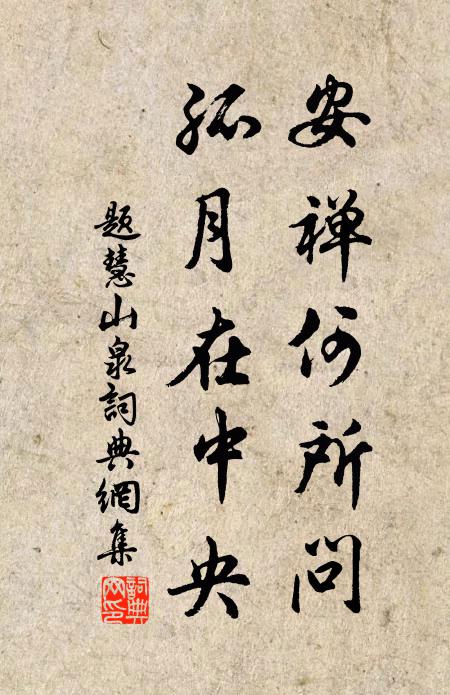 安禅何所问
孤月在中央
题慧山泉詞典網集
詞典
文印